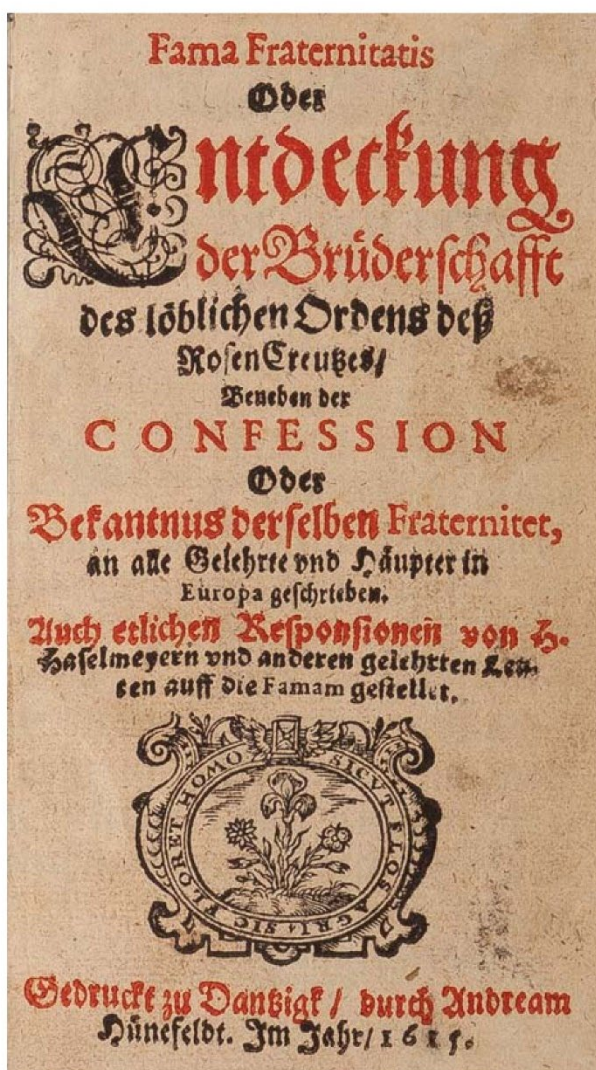 Fama Fraternitatis
Oder
Entdeckung
der Brüderschafft
des löblichen Ordens deß
RosenCreutzes/
Beneben der
CONFESSION
Oder
Bekantnus derselben Fraternitet,
an alle Gelehrte vnd Häupter in
Europa geschrieben.
Auch etlichen Responsionen von H.
Haselmeyern vnd anderen gelehrten Leu-
ten auff die Famam gestellet.
SICVT FLOS AGRI SIC FLORET HOMO
Gedruckt zu Dantzigk / durch Andream
Hünefeldt. Im Jahr/ 1615.